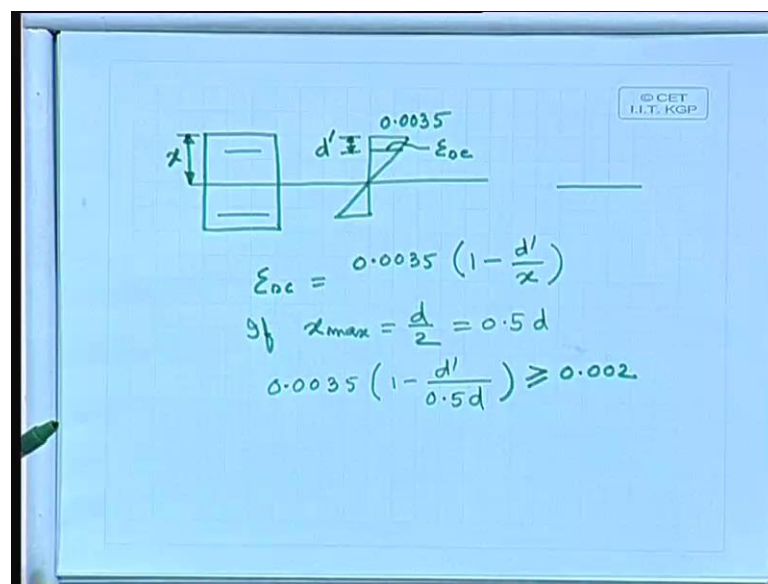 © CET
I.I.T. KGP
0.0035
x
d'
εsc
εsc = 0.0035 (1 - d'/x)
If xmax = d/2 = 0.5d
0.0035 (1 - d'/0.5d) ⩾ 0.002